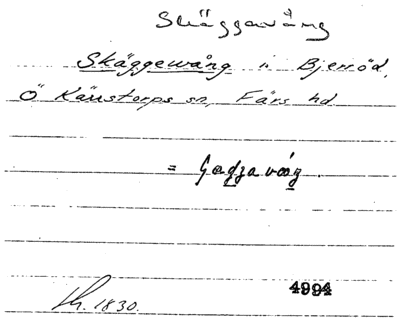 Skäggavång
Skäggewång i Bjerröd,
Ö Kärrstorps sn, Färs hd
= Gadzavång.
1830.
4994